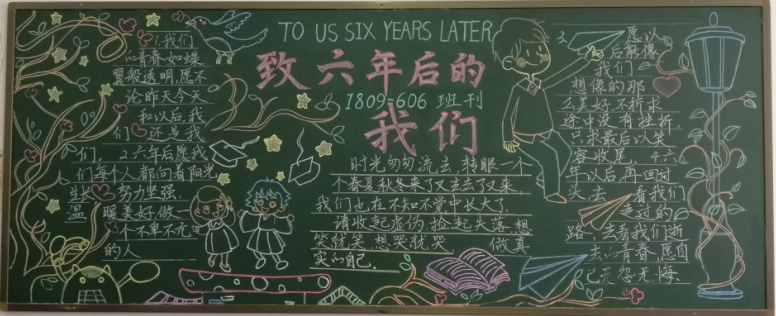 TO US SIX YEARS LATER
致六年后的
1809-606 班刊
我们
1.我们
的青春如蝶
翼般透明,愿不
论昨天今天
和以后,我
们还是我
们。2.六年后愿我
们每个人都向着阳光
生长 努力坚强
温暖美好做一
个不单不元
的人
时光匆匆流去,转眼一个
个春夏秋冬来了又去去了又来,
我们也在不知不觉中长大了.
请收起虚伪,捡起失落,想
笑就笑,想哭就哭, 做真
实的自己.
3. 愿以
后能像
我们
想像的那
么美好,不祈求
途中没有挫折,
只求最后以笑
容收尾. 4.六
年以后,再回过
头,去看我们
走过的
路,去看我们逝
去的青春.愿自
己无怨无悔.